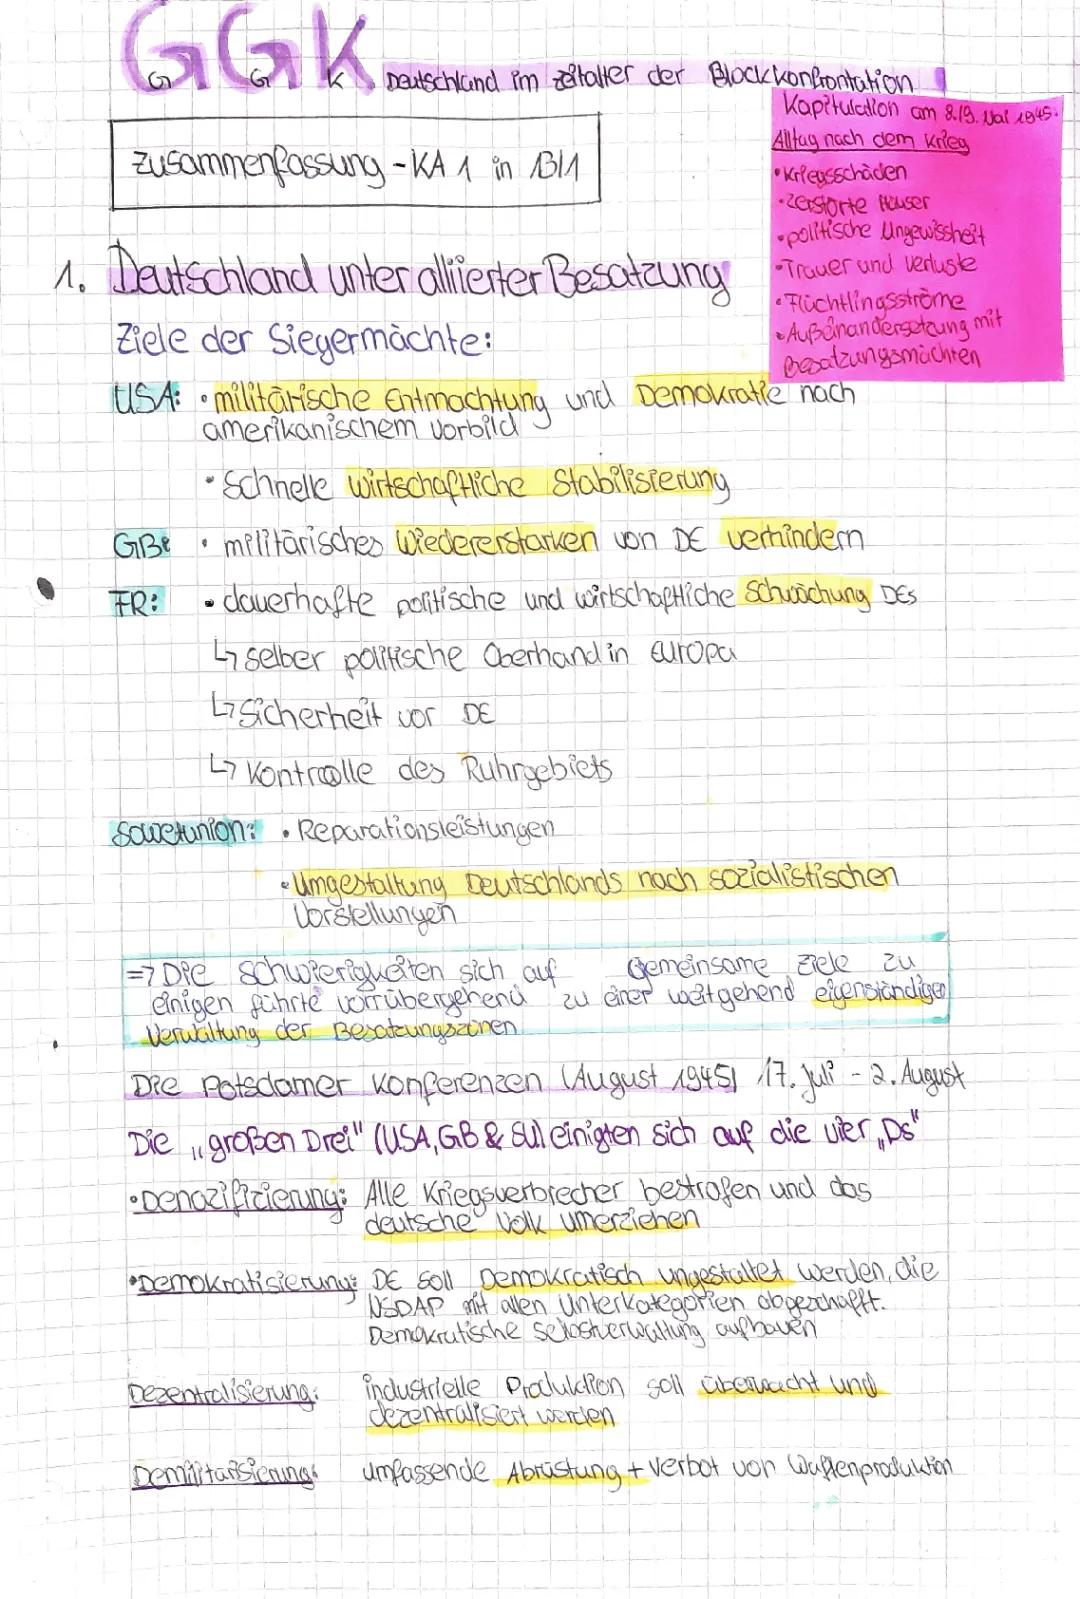 GGK
G G K Deutschland im Zeitalter der Blockkonfrontation
Zusammenfassung - KA 1 in 13/1
Kapitulation am 8./9. Mai 1945.
Alltag nach dem Krieg
• Kriegsschäden
• zerstörte Häuser
• politische Ungewissheit
• Trauer und Verluste
• Flüchtlingsströme
• Außeinandersetzung mit
Besatzungsmächten
1. Deutschland unter alliierter Besatzung
Ziele der Siegermächte:
USA: • militärische Entmachtung und Demokratie nach
amerikanischem Vorbild
• Schnelle wirtschaftliche Stabilisierung
GB: • militärisches Wiedererstarken von DE verhindern
FR: • dauerhafte politische und wirtschaftliche Schwächung DEs
↳ selber politische Oberhand in Europa
↳ Sicherheit vor DE
↳ Kontrolle des Ruhrgebiets
Sowetunion: • Reparationsleistungen
• Umgestaltung Deutschlands nach sozialistischen
Vorstellungen
=> Die Schwierigkeiten sich auf gemeinsame Ziele zu
einigen führte vorrübergehend zu einer weitgehend eigenständigen
Verwaltung der Besatzungszonen.
Die Potsdamer Konferenzen (August 1945) 17. Juli - 2. August
Die „großen Drei" (USA, GB & SU) einigten sich auf die vier „Ds"
• Denazifizierung: Alle Kriegsverbrecher bestrafen und das
deutsche Volk umerziehen
• Demokratisierung: DE soll Demokratisch ungestaltet werden, die
NSDAP mit allen Unterkategorien abgeschafft.
Demokratische Selbstverwaltung aufbauen
Dezentralisierung: industrielle Produktion soll überwacht und
dezentralisiert werden
Demilitarisierung: umfassende Abrüstung + Verbot von Waffenproduktion